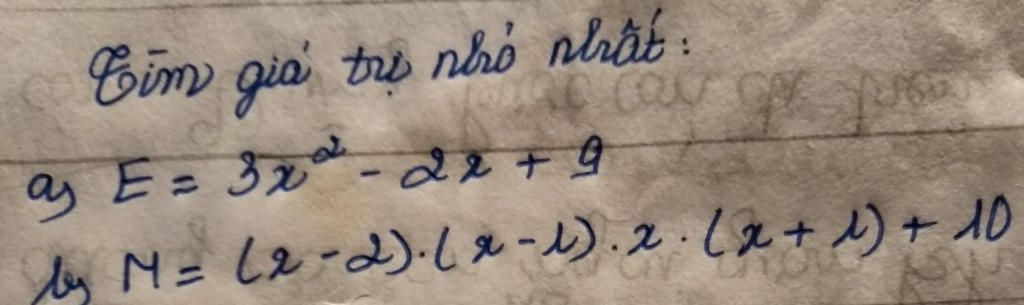 Tìm giá trị nhỏ nhất:
a) E = 3x² - 2x + 9
b) M = (x - 2).(x - 1).x.(x + 1) + 10